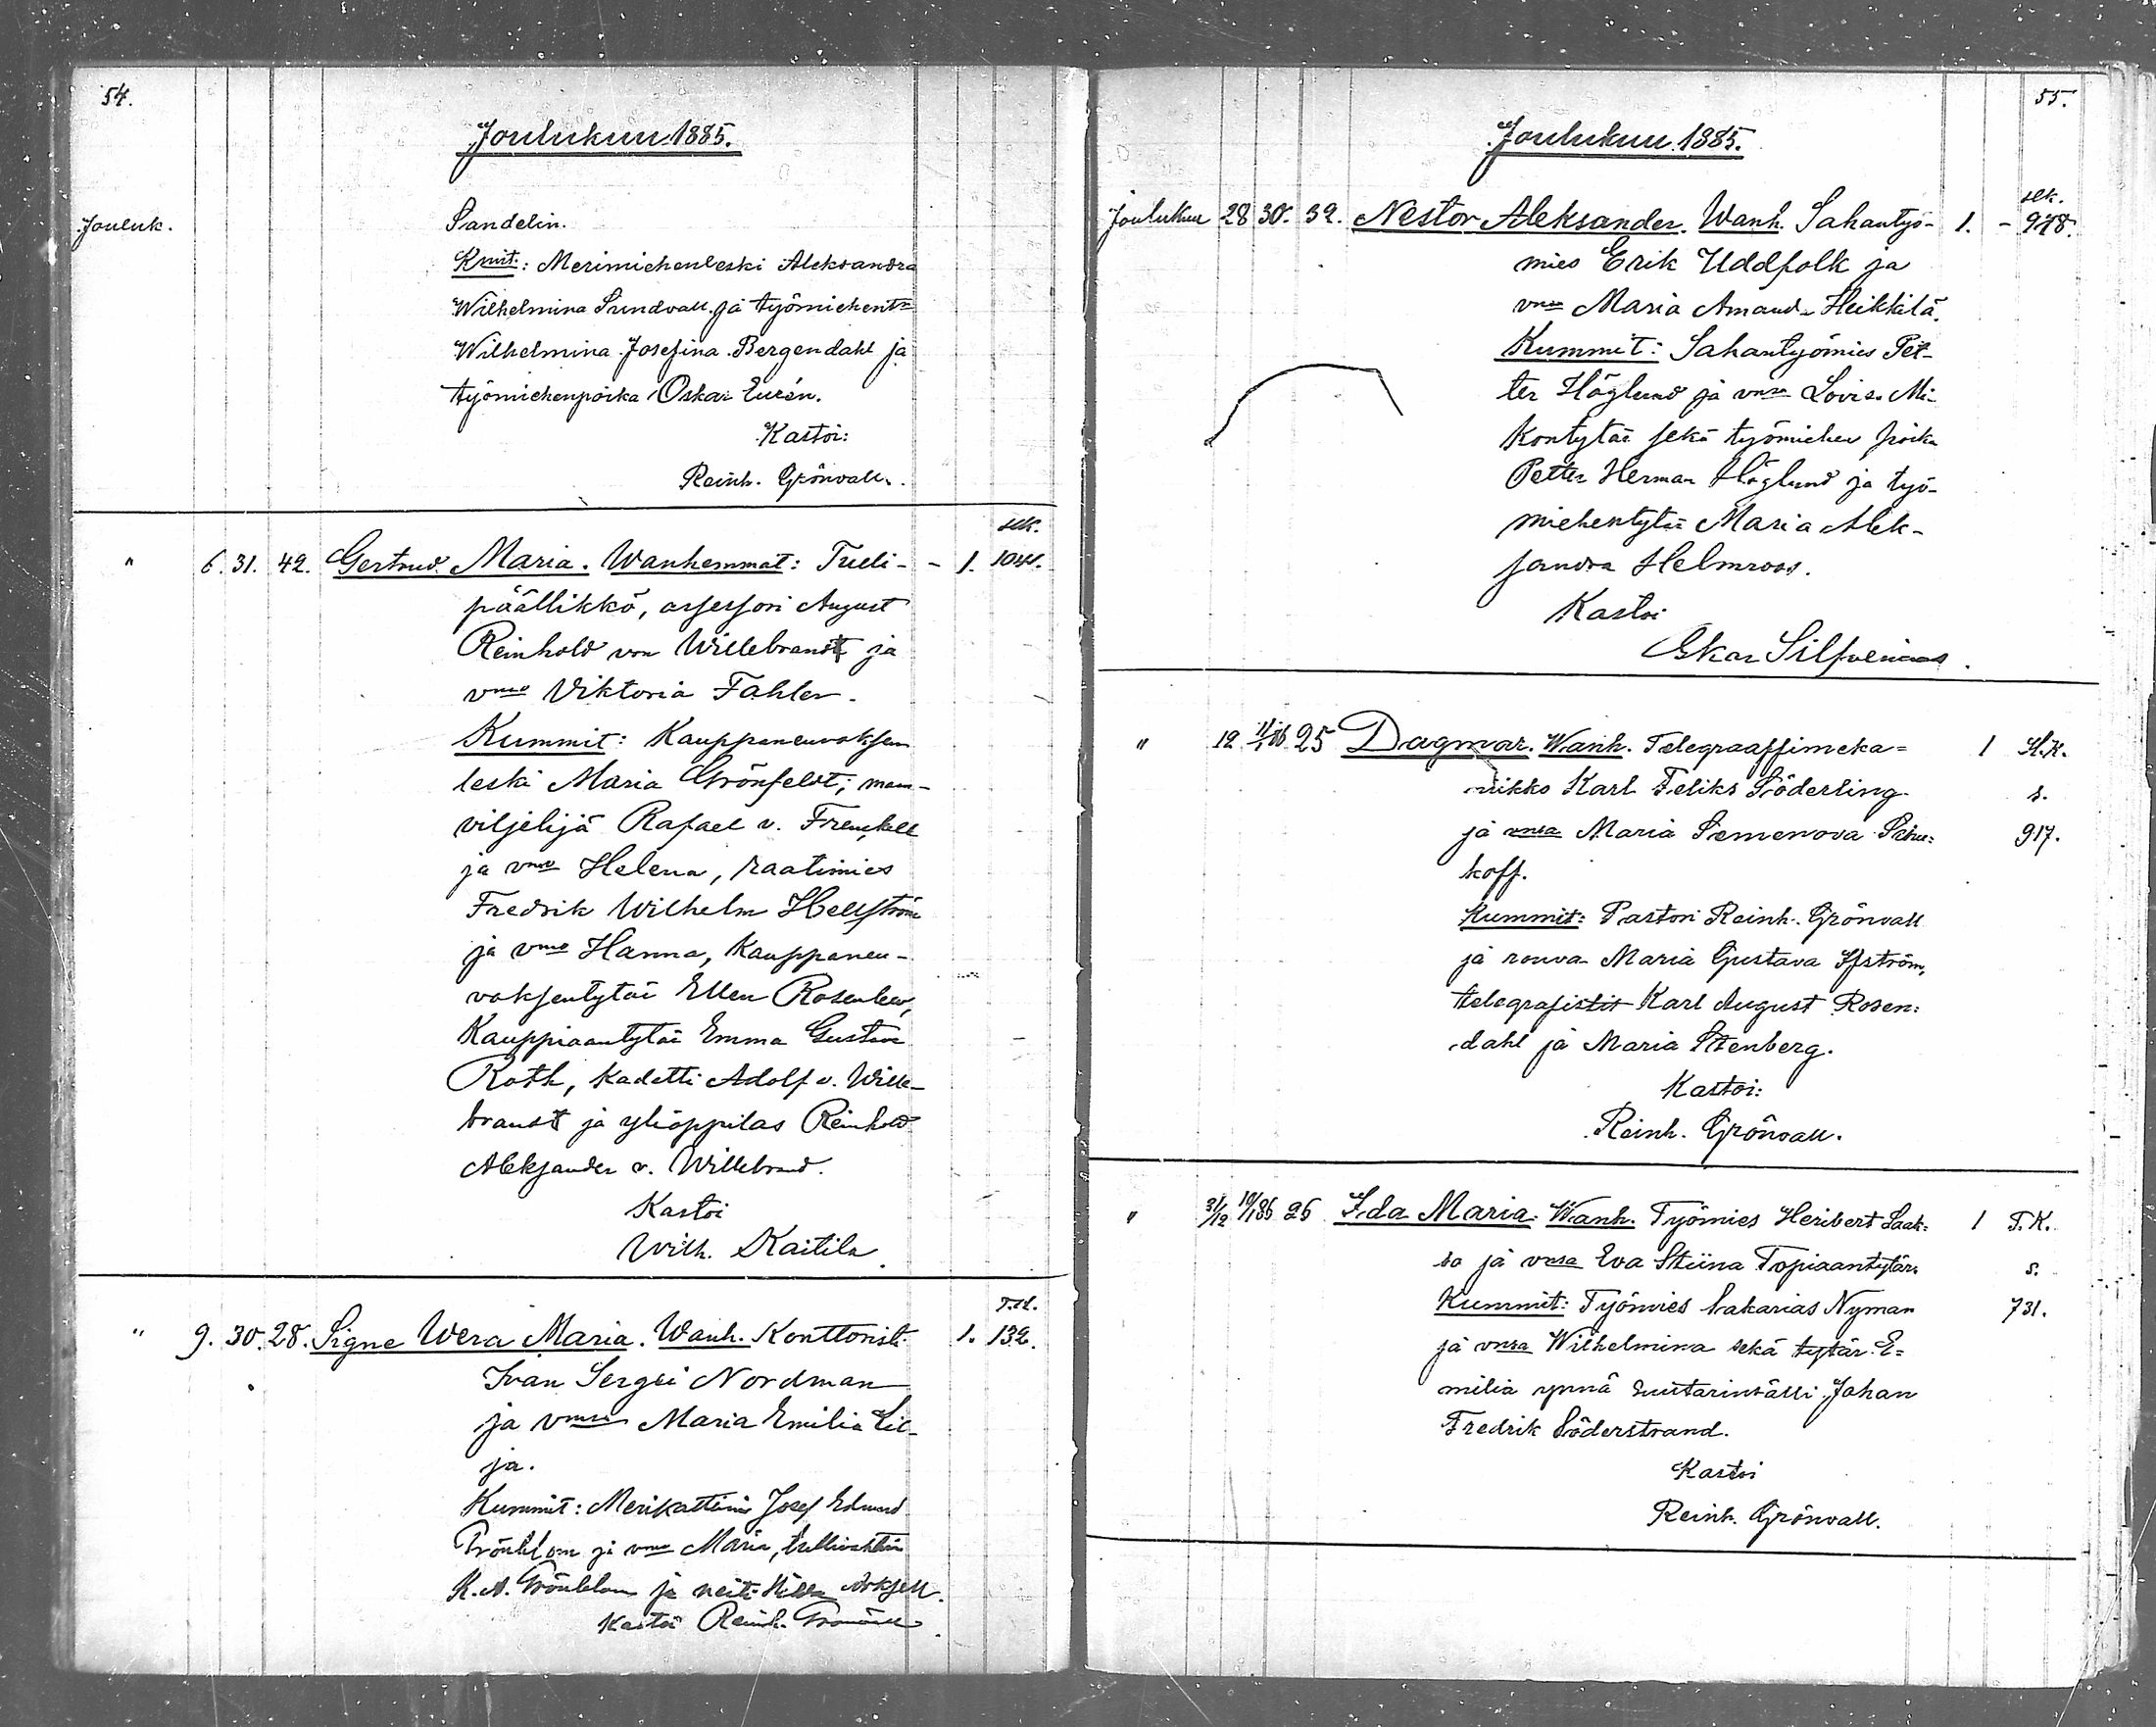 54.
Joulukuu 1885.
Jouluk. Sandelin.
Kmit.: Merimiehenleski Aleksandra
Wilhelmina Sundvall ja työmiehent:
Wilhelmina Josefina Bergendahl ja
työmiehenpoika Oskar Eurén.
Kastoi:
Reinh. Grönvall.
" 6. 31. 42. Gertrud Maria. Wanhemmat: Tuli- - 1. 1041.
päällikkö, assessori August
Reinhold von Willebrandt ja
vmo Viktoria Fahler.
Kummit: Kauppaneuvoksen
leski Maria Grönfeldt; maan-
viljelijä Rafael v. Frenckell
ja vmo Helena, raatimies
Fredrik Wilhelm Hellström
ja vmo Hanna, Kauppaneu-
voksentytär Ellen Rosenlew,
Kauppiaantytär Emma Gustava
Roth, Kadetti Adolf v. Wille-
brandt ja ylioppilas Reinhold
Aleksander v. Willebrand.
Kastoi
Wilh. Kaitila.
" 9. 30. 28. Signe Wera Maria. Wanh. Konttoristi 1. 132.
Ivan Sergei Nordman
ja vmsa Maria Emilia Lil-
ja.
Kummit: Merikapteini Josef Eduard
Grönblom ja vmo Maria,
K. A. Grönblom ja neiti
Kastoi Reinh. Grönvall.
55.
Joulukuu 1885.
Joulukuu 28 30. 32. Nestor Aleksander. Wanh. Sahantyö- 1. - 978.
mies Erik Uddfolk ja
vmsa Maria Amanda Heikkilä.
Kummit: Sahantyömies Pet-
ter Höglund ja vmsa Lovisa Mi-
kontytär sekä työmiehen poika
Petter Herman Höglund ja työ-
miehentytär Maria Alek-
sandra Helmroos.
Kastoi
Oskar Silfvenius.
" 12 11/1 86 25 Dagmar. Wanh. Telegraaffimeka= 1 H.K.
nikko Karl Feliks Söderling s.
ja vmsa Maria Semenova 917.
koff.
Kummit: Pastori Reinh. Grönvall
ja rouva Maria Gustava Sjöström,
telegrafistit Karl August Rosen:
dahl ja Maria Stenberg.
Kastoi:
Reinh. Grönvall.
" 31/12 10/1 86 26 Ida Maria. Wanh. Työmies Heribert Laak= 1 T.K.
so ja vmsa Eva Stiina Topiaantytär. s.
Kummit: Työmies Sakarias Nyman 731.
ja vmsa Wilhelmina sekä tytär E=
milia ynnä suutarinsälli Johan
Fredrik Söderstrand.
Kastoi
Reinh. Grönvall.